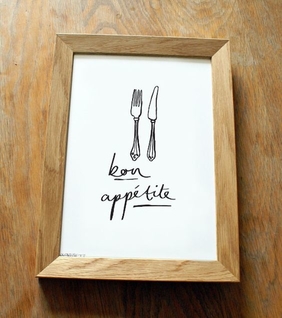 bon
appétite